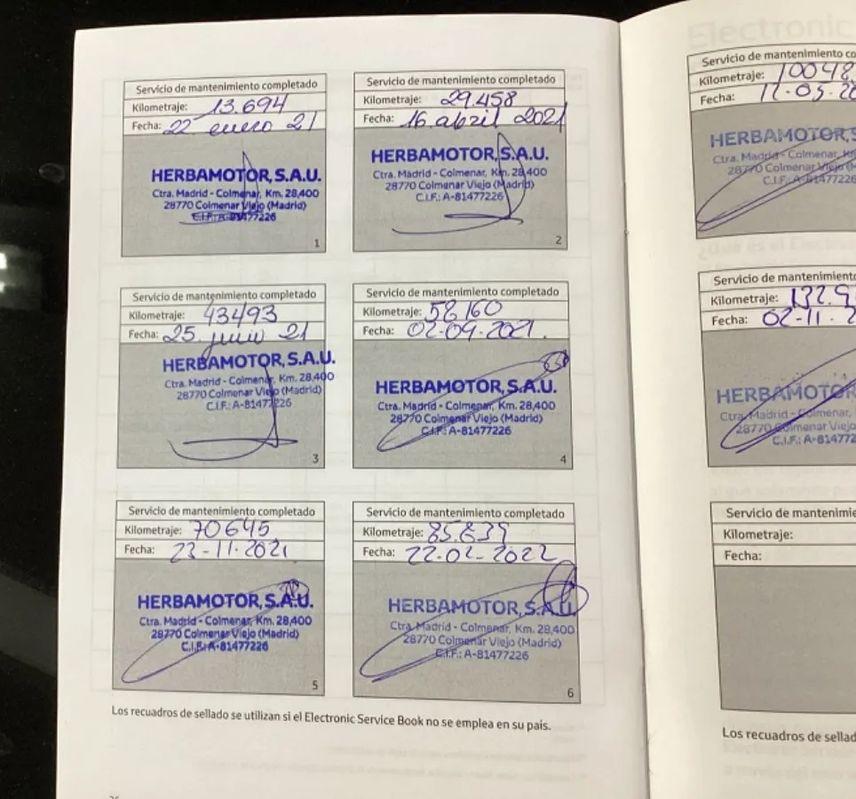 Servicio de mantenimiento completado
Kilometraje: 13.694
Fecha: 22 enero 21
HERBAMOTOR, S.A.U.
Ctra. Madrid - Colmenar, Km. 28,400
28770 Colmenar Viejo (Madrid)
C.I.F.: A-81477226
1
Servicio de mantenimiento completado
Kilometraje: 29.458
Fecha: 16 abril 2021
HERBAMOTOR, S.A.U.
Ctra. Madrid - Colmenar, Km. 28,400
28770 Colmenar Viejo (Madrid)
C.I.F.: A-81477226
2
Servicio de mantenimiento completado
Kilometraje: 43493
Fecha: 25 junio 21
HERBAMOTOR, S.A.U.
Ctra. Madrid - Colmenar, Km. 28,400
28770 Colmenar Viejo (Madrid)
C.I.F.: A-81477226
3
Servicio de mantenimiento completado
Kilometraje: 58160
Fecha: 02-09-2021
HERBAMOTOR, S.A.U.
Ctra. Madrid - Colmenar, Km. 28,400
28770 Colmenar Viejo (Madrid)
C.I.F.: A-81477226
4
Servicio de mantenimiento completado
Kilometraje: 70645
Fecha: 23-11-2021
HERBAMOTOR, S.A.U.
Ctra. Madrid - Colmenar, Km. 28,400
28770 Colmenar Viejo (Madrid)
C.I.F.: A-81477226
5
Servicio de mantenimiento completado
Kilometraje: 85.839
Fecha: 22-02-2022
HERBAMOTOR, S.A.U.
Ctra. Madrid - Colmenar, Km. 28,400
28770 Colmenar Viejo (Madrid)
C.I.F.: A-81477226
6
Los recuadros de sellado se utilizan si el Electronic Service Book no se emplea en su país.
Electronic
Servicio de mantenimiento
Kilometraje: 10048
Fecha:
HERBAMOTOR, S
Ctra. Madrid - Colmenar,
28770 Colmenar Viejo
C.I.F.: A-81477226
Servicio de mantenimiento
Kilometraje: 132.9
Fecha: 02-11-2
HERBAMOTOR
Ctra. Madrid - Colmenar,
28770 Colmenar Viejo
C.I.F.: A-81477
Servicio de mantenimie
Kilometraje:
Fecha:
Los recuadros de sellad